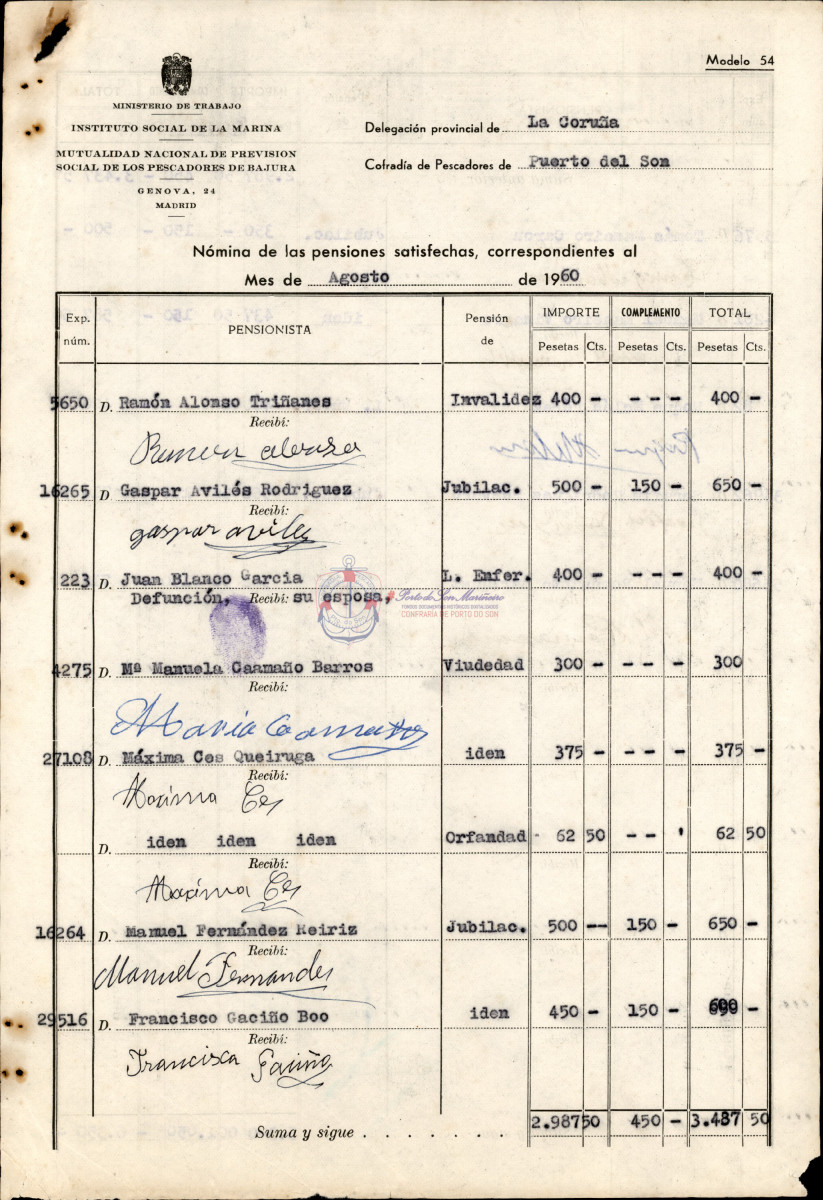 Modelo 54
MINISTERIO DE TRABAJO
INSTITUTO SOCIAL DE LA MARINA
MUTUALIDAD NACIONAL DE PREVISION
SOCIAL DE LOS PESCADORES DE BAJURA
GENOVA, 24
MADRID
Delegación provincial de La Coruña
Cofradía de Pescadores de Puerto del Son
Nómina de las pensiones satisfechas, correspondientes al
Mes de Agosto de 1960
Exp. núm. PENSIONISTA Pensión de IMPORTE COMPLEMENTO TOTAL
Pesetas Cts. Pesetas Cts. Pesetas Cts.
5650 D. Ramón Alonso Triñanes Invalidez 400 - - - - 400 -
Recibí:
Ramon alonso
16265 D Gaspar Avilés Rodriguez Jubilac. 500 - 150 - 650 -
Recibí:
gaspar aviles
223 D. Juan Blanco Garcia L. Enfer. 400 - - - - 400 -
Defunción, Recibí: su esposa,
Porto do Son Mariñeiro
FONDOS DOCUMENTAIS HISTÓRICOS DIXITALIZADOS
CONFRARÍA DE PORTO DO SON
4275 D. Mª Manuela Caamaño Barros Viudedad 300 - - - - 300
Recibí:
Maria Caamaño
27108 D. Máxima Ces Queiruga iden 375 - - - - 375 -
Recibí:
Maxima Ces
D. iden iden iden Orfandad - 62 50 - - ' 62 50
Recibí:
Maxima Ces
16264 D. Manuel Fernández Reiriz Jubilac. 500 -- 150 - 650 -
Recibí:
Manuel Fernandes
29516 D. Francisco Gaciño Boo iden 450 - 150 - 600 -
Recibí:
Francisca Gaciño
Suma y sigue . . . . . . . 2.987 50 450 - 3.437 50